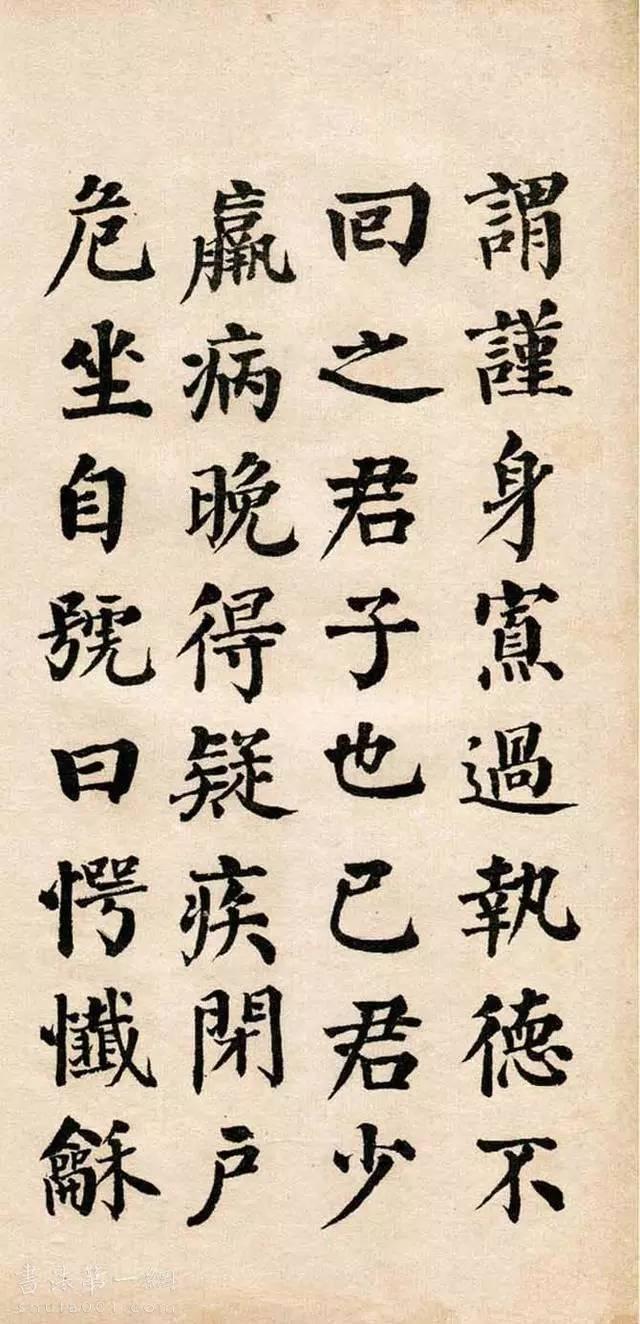 謂謹身寡過執德不
回之君子也已君少
羸病晚得疑疾閉户
危坐自號曰愕懺龢
书法第一网
shufa001.com